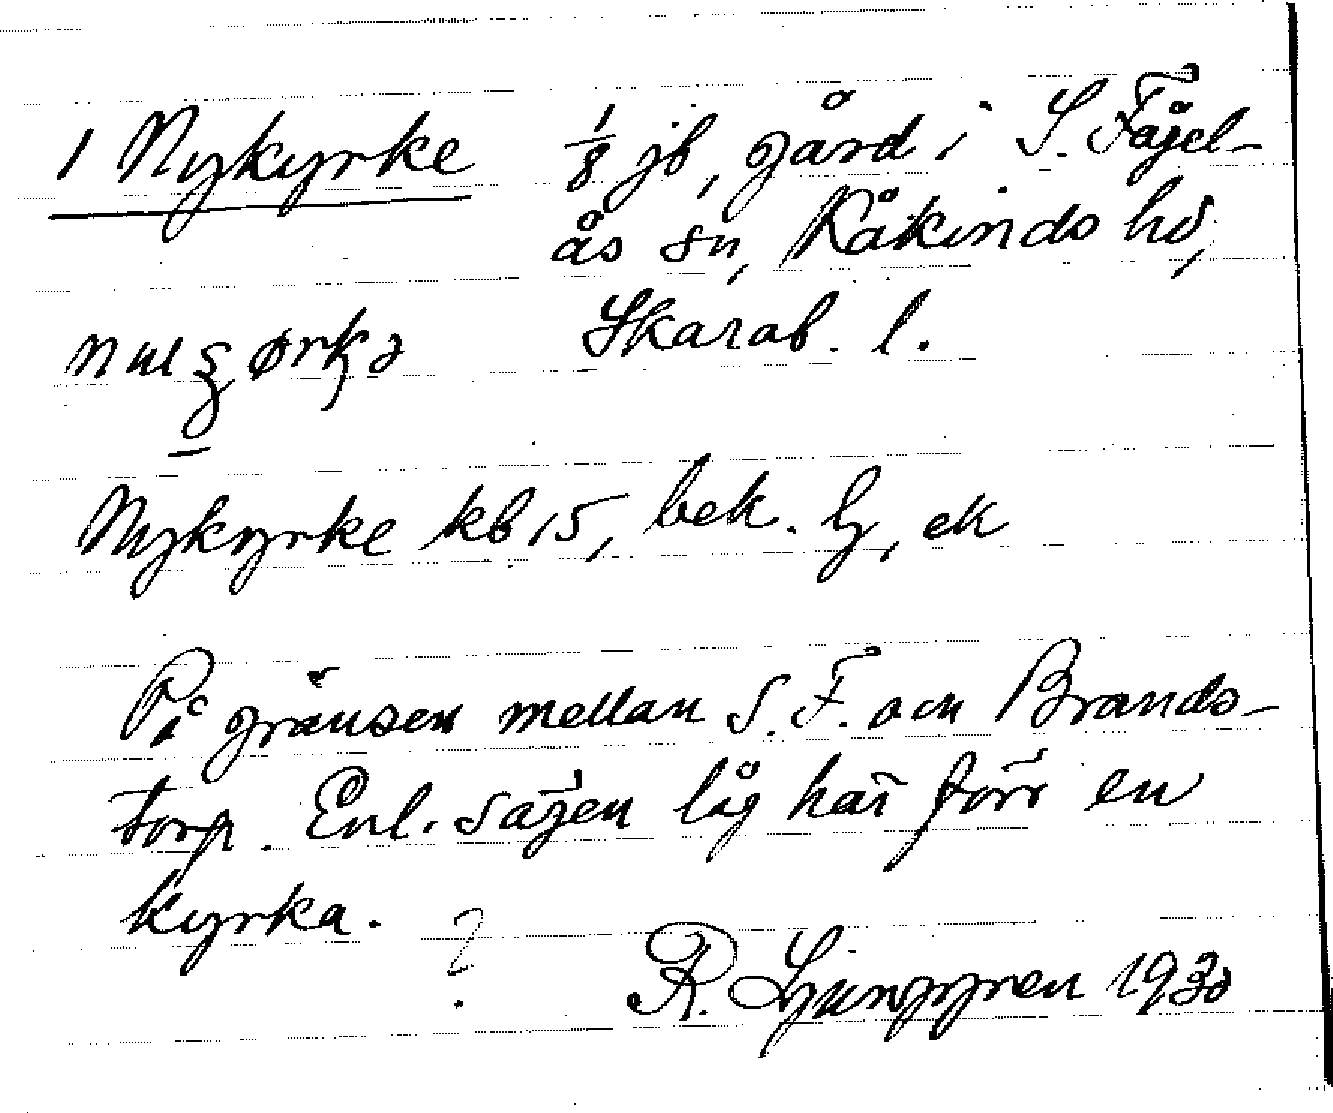 1 Nykyrke 1/8 jb, gård i S. Fågel-
ås sn, Kåkinds hd,
Skarab. l.
Nykyrke kb 15, bek. ly, ek
På gränsen mellan S. F. och Brands-
torp. Enl. sägen låg här förr en
kyrka. ?
R. Ljunggren 1930